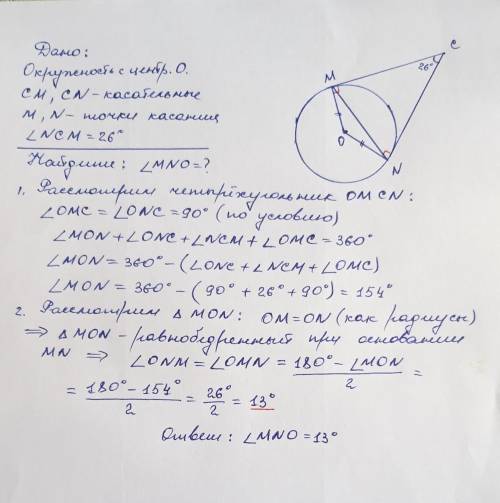 Дано:
Окружность с центр. О.
CM, CN - касательные
M, N - точки касания
∠NCM = 26°
Найдите: ∠MNO = ?
1. Рассмотрим четырёхугольник OMCN:
∠OMC = ∠ONC = 90° (по условию)
∠MON + ∠ONC + ∠NCM + ∠OMC = 360°
∠MON = 360° - (∠ONC + ∠NCM + ∠OMC)
∠MON = 360° - (90° + 26° + 90°) = 154°
2. Рассмотрим △MON: OM = ON (как радиусы)
⇒ △MON - равнобедренный при основании
MN ⇒ ∠ONM = ∠OMN = (180° - ∠MON)/2 =
= (180° - 154°)/2 = 26°/2 = 13°
Ответ: ∠MNO = 13°
C
26°
M
O
N